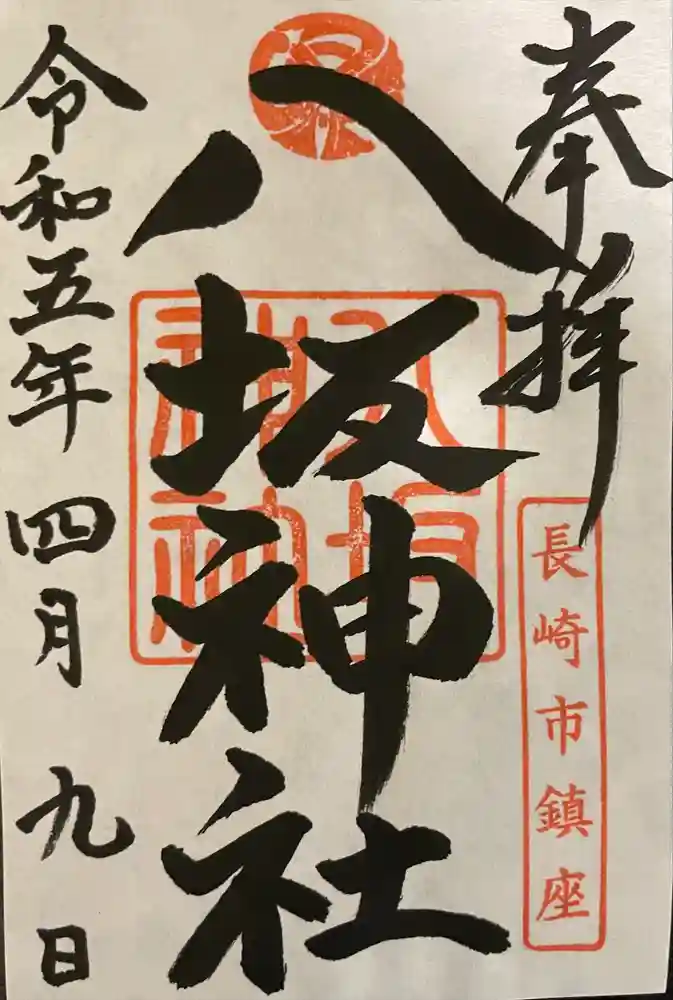 奉拝
長崎市鎮座
八坂神社
八坂
神社
令和五年 四月 九日